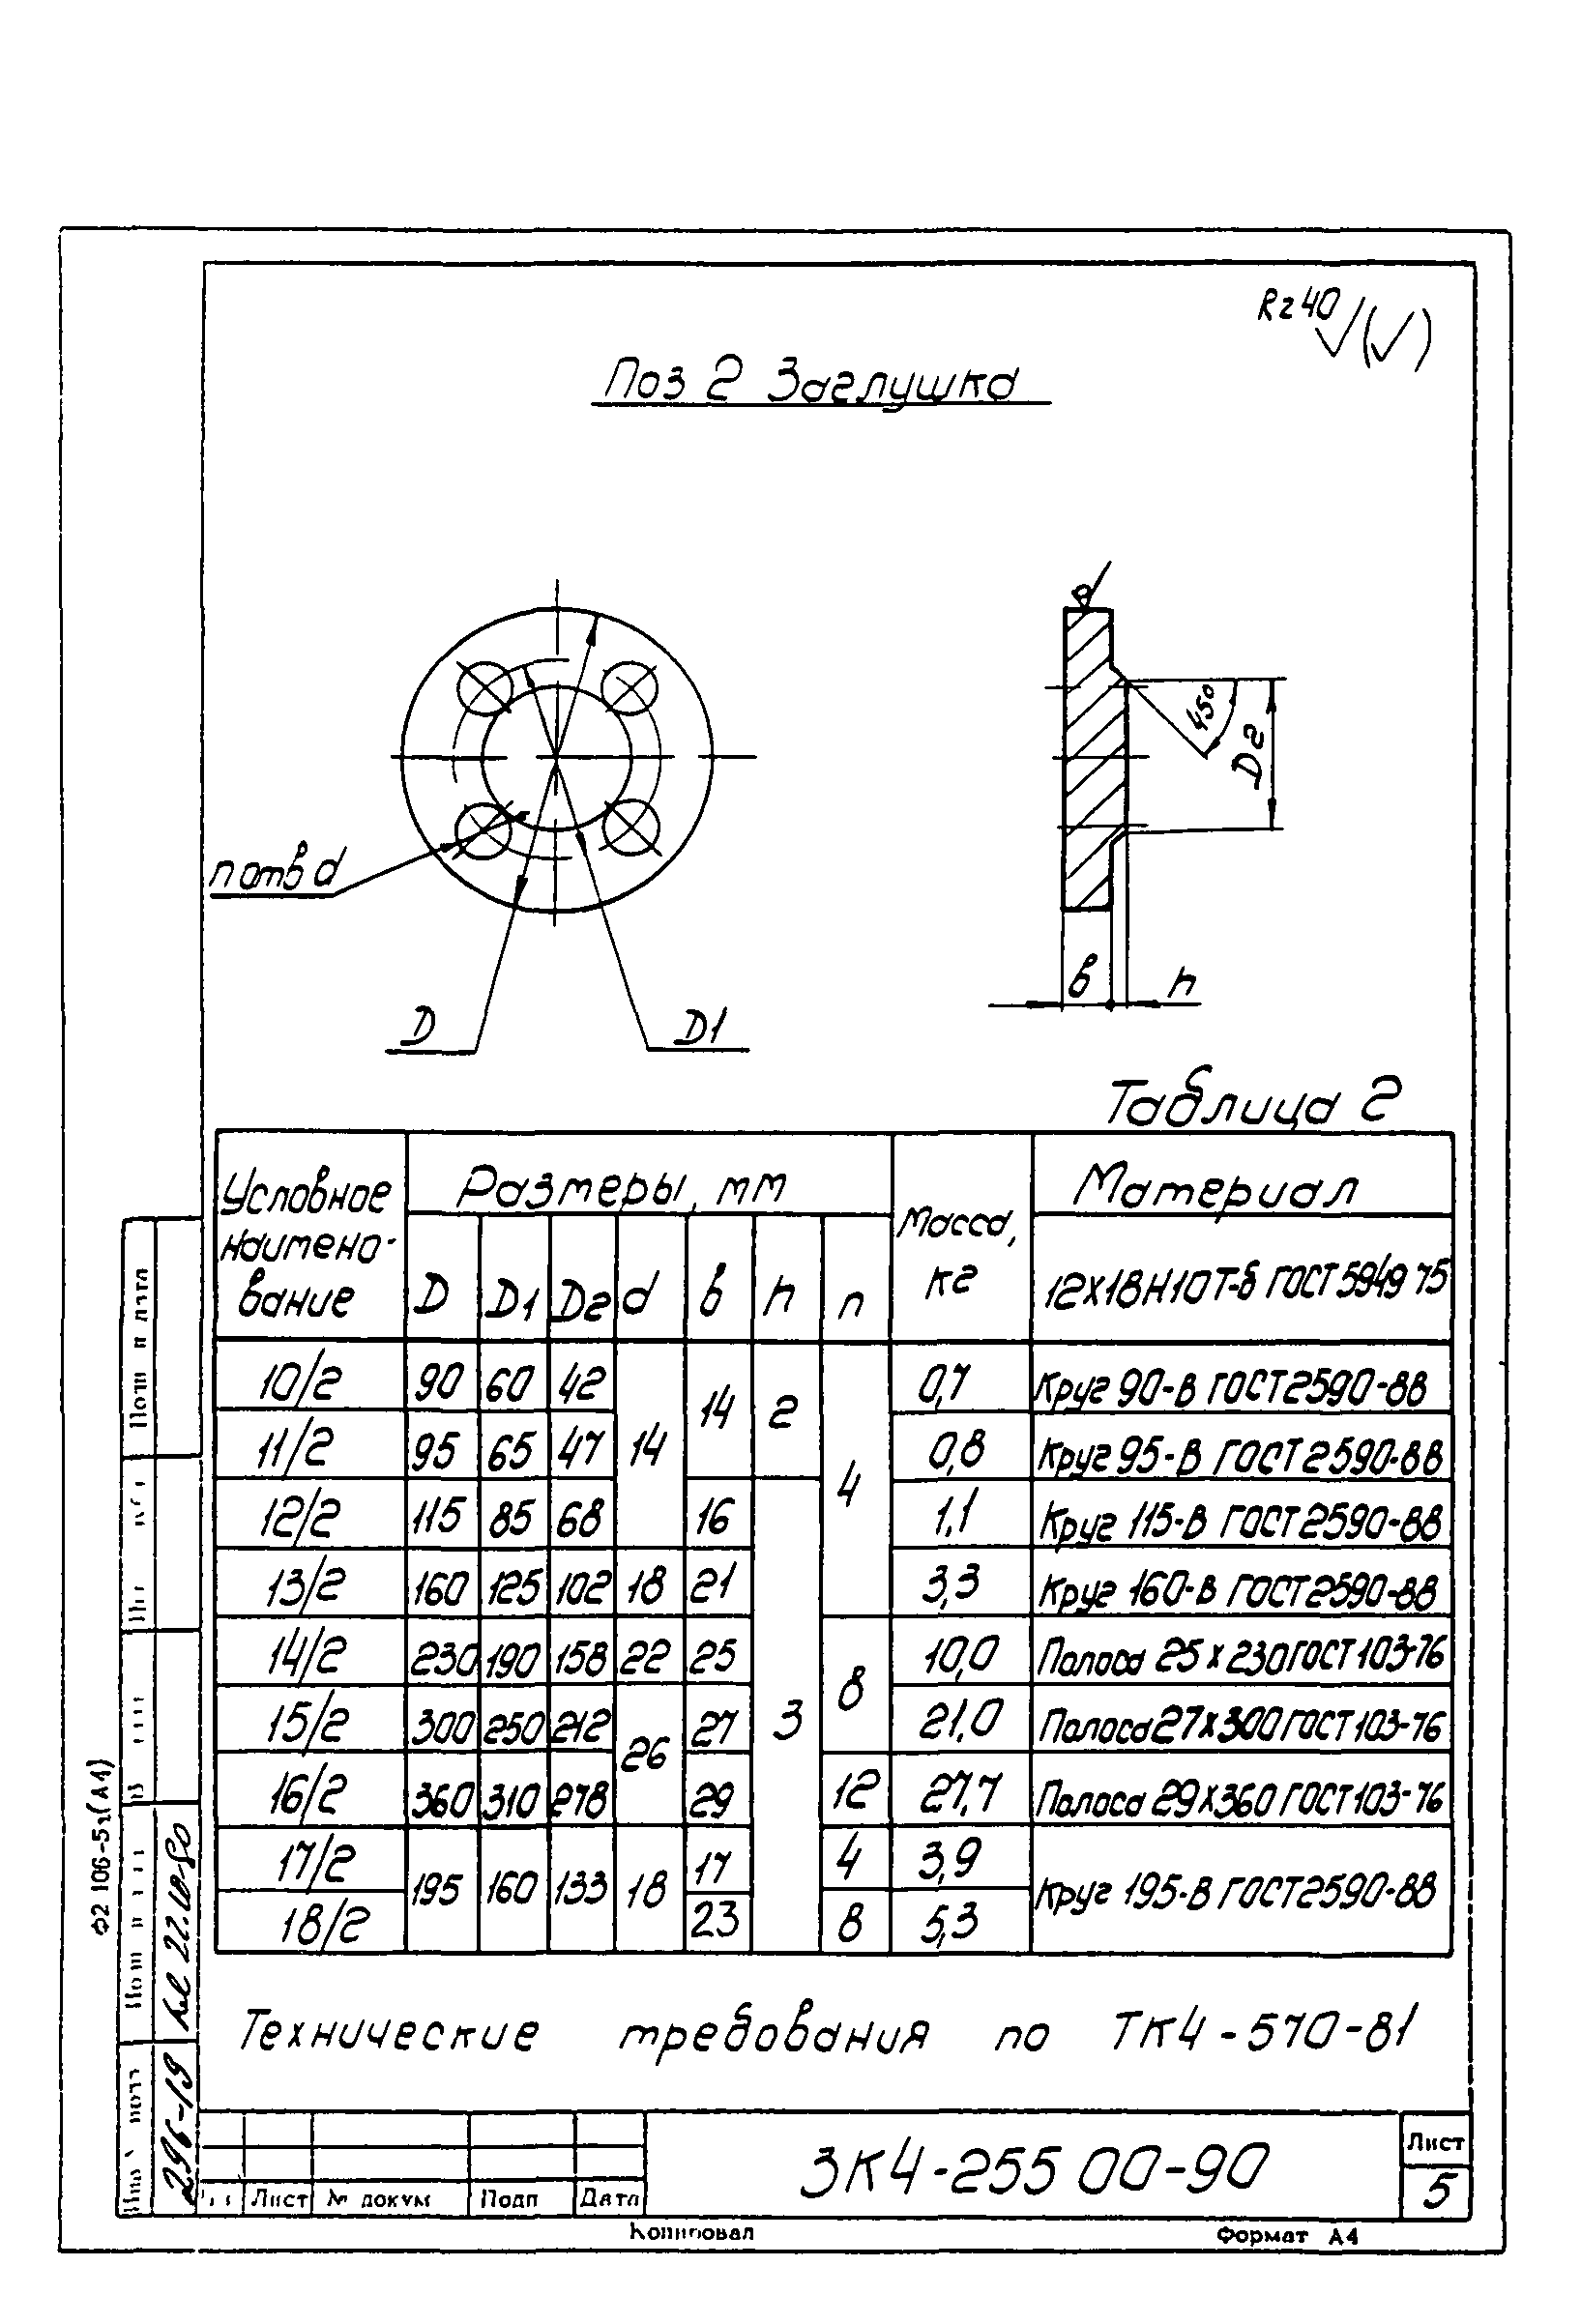 Rz40
Поз 2 Заглушка
45°
D2
n отв d
в h
D D1
Таблица 2
Условное наимено-вание Размеры, мм Масса, кг Материал
D D1 D2 d в h n 12Х18Н10Т-б ГОСТ 5949 75
10/2 90 60 42 14 14 2 4 0,7 Круг 90-В ГОСТ 2590-88
11/2 95 65 47 0,8 Круг 95-В ГОСТ 2590-88
12/2 115 85 68 16 3 1,1 Круг 115-В ГОСТ 2590-88
13/2 160 125 102 18 21 3,3 Круг 160-В ГОСТ 2590-88
14/2 230 190 158 22 25 8 10,0 Полоса 25 х 230 ГОСТ 103-76
15/2 300 250 212 26 27 21,0 Полоса 27х300 ГОСТ 103-76
16/2 360 310 278 29 12 27,7 Полоса 29х360 ГОСТ 103-76
17/2 195 160 133 18 17 4 3,9 Круг 195-В ГОСТ 2590-88
18/2 23 8 5,3
Технические требования по ТК4-570-81
3К4-255 00-90
Лист
5
Лист № докум Подп Дата
Копировал
Формат А4
Ф2 106-5г(А4)
Подп и дата
22.10.80
296-19